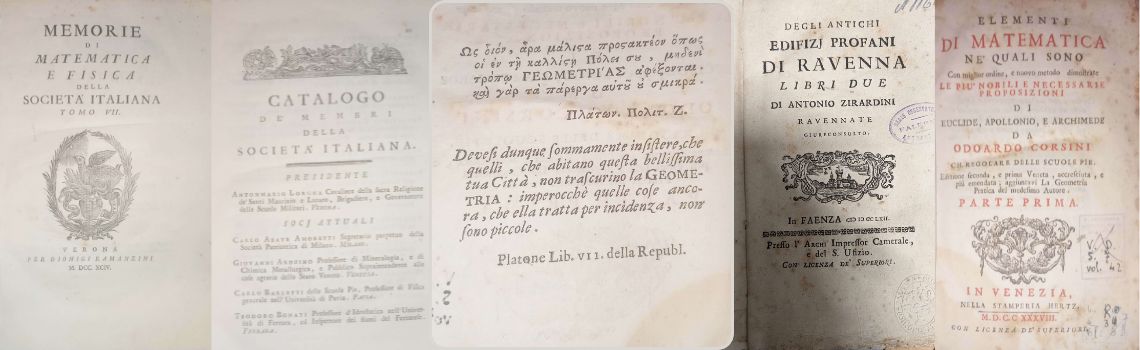 MEMORIE
DI
MATEMATICA
E FISICA
DELLA
SOCIETÀ ITALIANA
TOMO VII.
VERONA
PER DIONIGI RAMANZINI
M. DCC XCIV.
CATALOGO
DE' MEMBRI
DELLA
SOCIETÀ ITALIANA.
PRESIDENTE
ANTONMARIO LORGNA Cavaliere della Sacra Religione
de' Santi Maurizio e Lazaro, Brigadiere, e Governatore
delle Scuole Militari. VERONA.
SOCJ ATTUALI
CARLO ABATE AMORETTI Segretario perpetuo della
Società Patriotica di Milano. MILANO.
GIOVANNI ARDUINO Professore di Mineralogia, e di
Chimica Metallurgica, e Pubblico Sopraintendente alle
cose agrarie dello Stato Veneto. VENEZIA.
CARLO BARLETTI delle Scuole Pie, Professore di Fisica
generale nell'Università di Pavia. PAVIA.
TEODORO BONATI Professore d'Idrostatica nell'Univer-
sità di Ferrara, ed Ispettore dei fiumi del Ferrarese.
FERRARA.
Ὡς οἷόν, ἄρα μάλιστα προστακτέον ὅπως
οἱ ἐν τῇ καλλίστῃ Πόλει σου, μηδενὶ
τρόπῳ ΓΕΩΜΕΤΡΊΑΣ ἀφέξονται.
καὶ γὰρ τὰ πάρεργα αὐτοῦ οὐ σμικρά.
Πλάτων. Πολιτ. Ζ.
Devesi dunque sommamente insistere, che
quelli, che abitano questa bellissima
tua Città, non trascurino la GEOME-
TRIA: imperocchè quelle cose anco-
ra, che ella tratta per incidenza, non
sono piccole.
Platone Lib. VII. della Republ.
DEGLI ANTICHI
EDIFIZJ PROFANI
DI RAVENNA
LIBRI DUE
DI ANTONIO ZIRARDINI
RAVENNATE
GIURECONSULTO.
In FAENZA CIↃIↃCCLXII.
Presso l' ARCHI Impressor Camerale,
e del S. Ufizio.
CON LICENZA DE' SUPERIORI.
ELEMENTI
DI MATEMATICA
NE' QUALI SONO
Con miglior ordine, e nuovo metodo dimostrate
LE PIU' NOBILI E NECESSARIE
PROPOSIZIONI
DI
EUCLIDE, APOLLONIO, E ARCHIMEDE
DA
ODOARDO CORSINI
CH. REGOLARE DELLE SCUOLE PIE.
Edizione seconda, e prima Veneta, accresciuta, e
più emendata; aggiuntavi La Geometria
Pratica del medesimo Autore.
PARTE PRIMA.
IN VENEZIA,
NELLA STAMPERIA HERTZ.
M. D. C. C XXXVIII.
CON LICENZA DE' SUPERIORI.
vol. 42